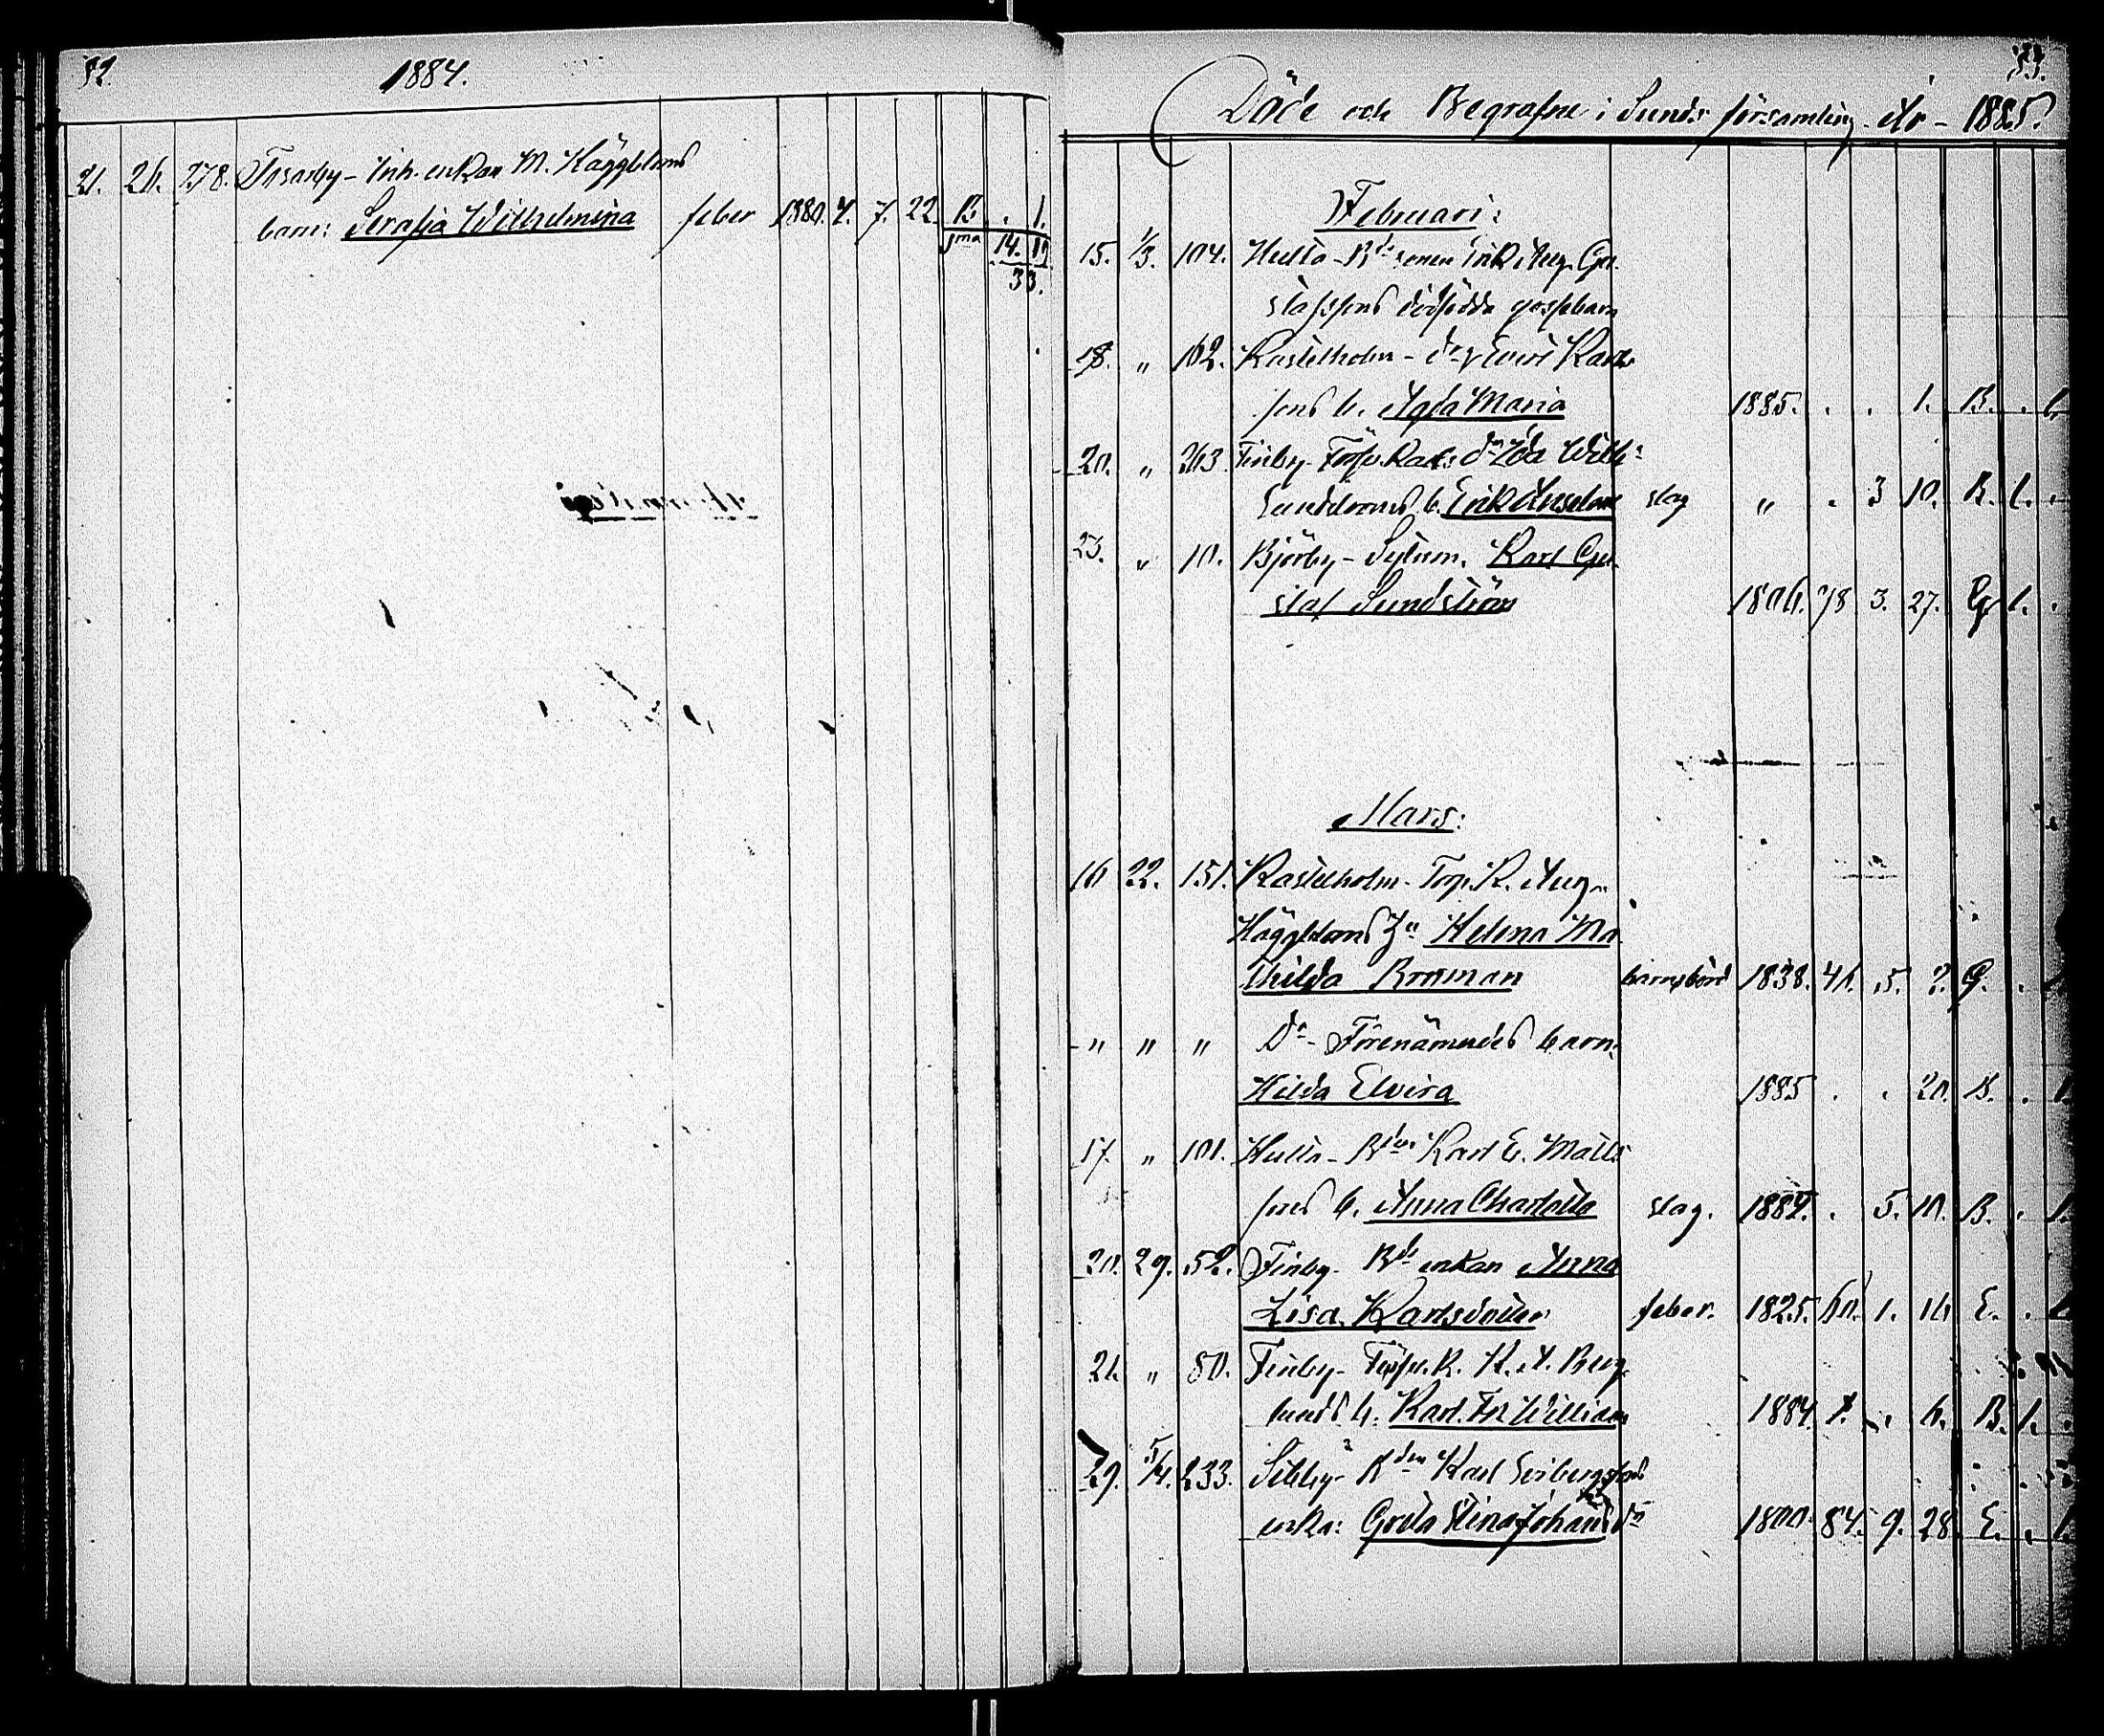 82. 1884.
21. 26. 278. Tosarby - Inh. enkan M. Häggbloms
barn: Serafia Wilhelmina feber 1880. 4. 7. 22 B. . 1.
sma 14. 19
33.
83.
Döde och Begrafne i Sunds församling År - 1885.
Februari:
15. 1/3. 104. Hulta - Bde sonen Erik Aug. Gu-
stafssons dödfödda gossebarn
18. " 162. Kastelholm - Karls
sons b. Agda Maria 1885. . . 1. B. . 1.
20. " 263 Finby - Ida Wilh:
Sundbloms b. Erik Anselm slag " . 3 10. B. 1. .
23. " 10. Björby - Sytnm. Karl Gu-
staf Sundström 1806. 78 3. 27. G 1. .
Mars:
16 22. 151. Kastelholm - Torp. K. Aug.
Häggbloms Hu Helena Ma-
thilda Broman barnsbörd 1838. 46. 5. 2. G. . 1
" " " Do - Förenämndes barn
Hilda Elvira 1885 . . 20. B. . 1
17. " 101. Hulta - Bden Karl E. Matts
sons b. Anna Charlotta slag. 1884. . 5. 10. B. . 1.
20. 29. 52. Finby - Bde enkan Anna
Lisa Karlsdotter feber. 1825. 60. 1. 16 E. . 1
26. " 80. Finby - K. A. Berg-
lunds b. Karl Fr William 1884 1. . 6. B. 1. .
29. 5/4. 233. Sibby - Bden Karl Ersbergssons
enka: Greta Stina Johansdr 1800. 84. 9. 28. E. . 1.